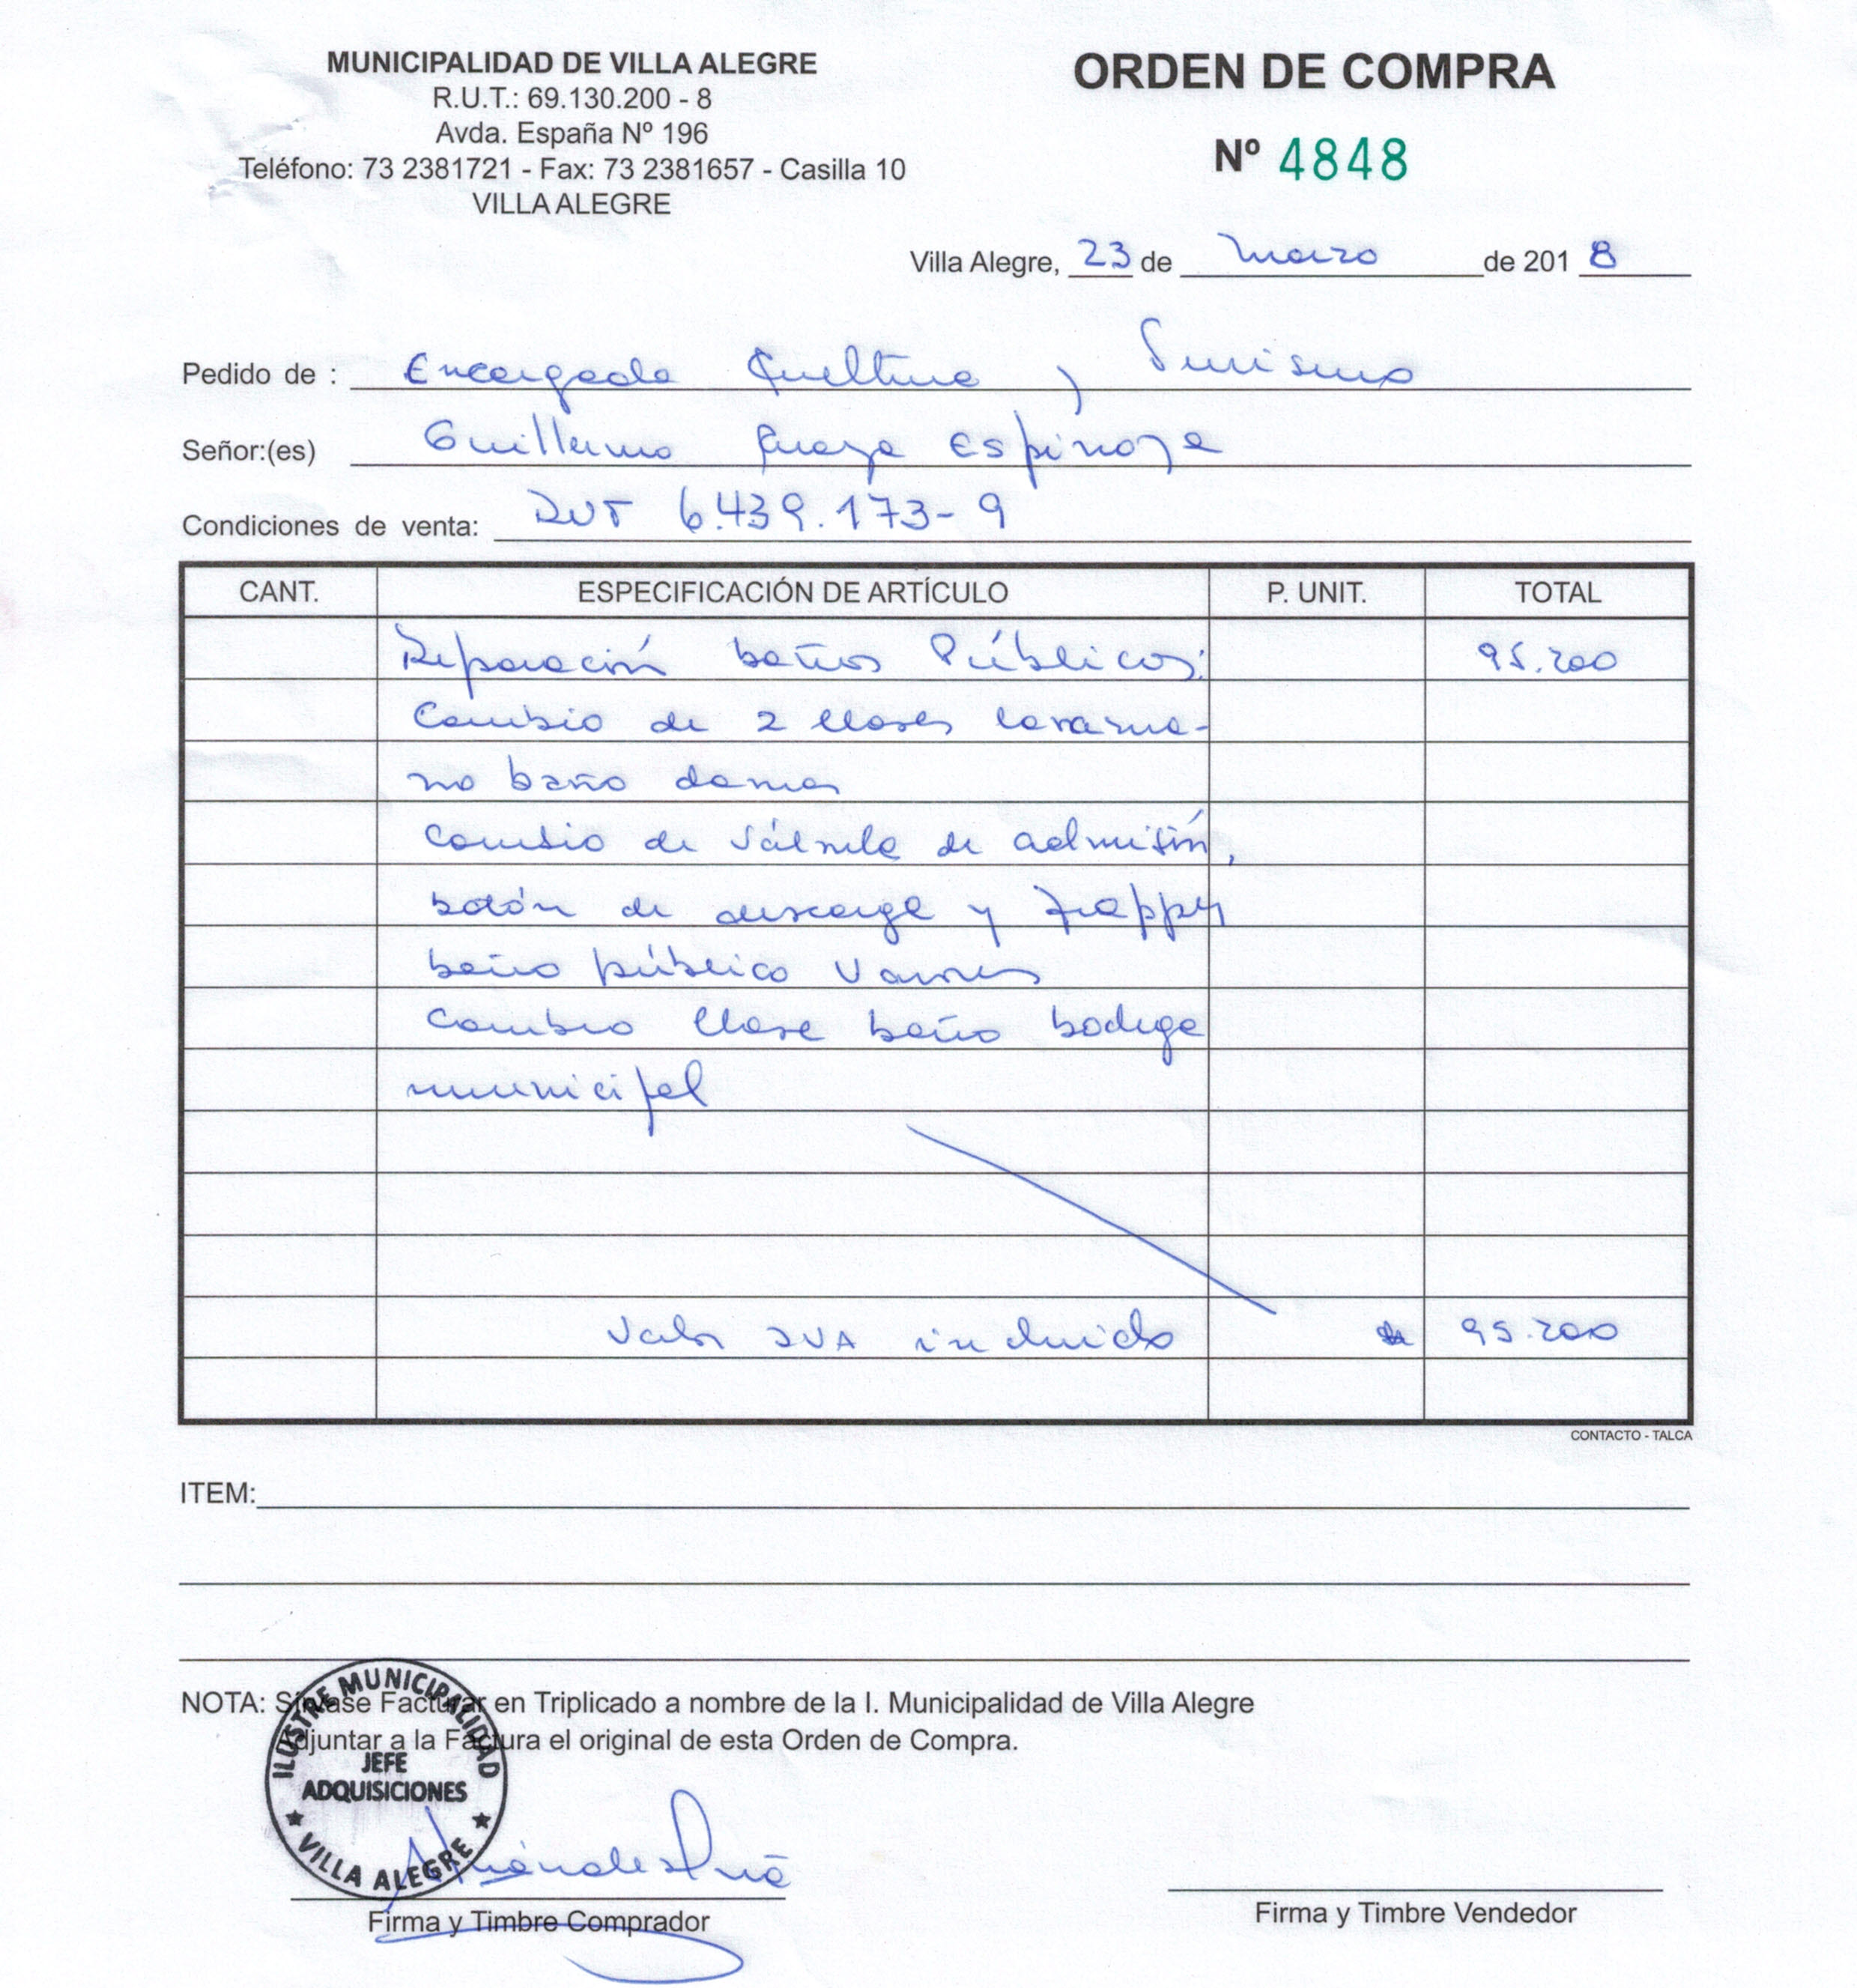 MUNICIPALIDAD DE VILLA ALEGRE
R.U.T.: 69.130.200 - 8
Avda. España Nº 196
Teléfono: 73 2381721 - Fax: 73 2381657 - Casilla 10
VILLA ALEGRE
ORDEN DE COMPRA
Nº 4848
Villa Alegre, 23 de marzo de 2018
Pedido de : Encargada Cultura y Turismo
Señor:(es) Guillermo Espinoza
Condiciones de venta: RUT 6.439.173-9
CANT. ESPECIFICACIÓN DE ARTÍCULO P. UNIT. TOTAL
Reparación baños Públicos: 95.200
Cambio de 2 llaves lavama-
no baño damas
cambio de válvula de admisión,
botón de descarga y flapper
baño público varones
cambio llave baño bodega
municipal
Valor IVA incluido 95.200
CONTACTO - TALCA
ITEM:
NOTA: Sírvase Facturar en Triplicado a nombre de la I. Municipalidad de Villa Alegre
Adjuntar a la Factura el original de esta Orden de Compra.
ILUSTRE MUNICIPALIDAD
JEFE
ADQUISICIONES
VILLA ALEGRE
Firma y Timbre Comprador
Firma y Timbre Vendedor